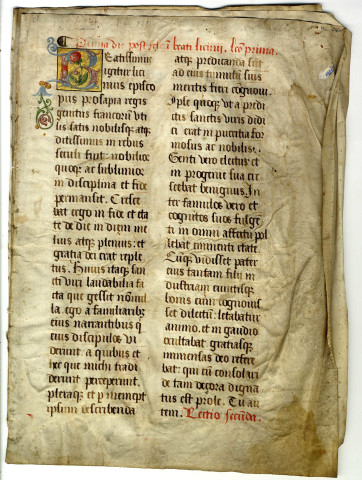 Prima die post festum beati licinii, lectio prima.
Beatissimus
igitur lici
nius episco
pus prosapia regis
genitus francorum uti
lis satis nobilisque atque
ditissimus in rebus
seculi fuit: nobilior
quoque ac sublimior
in disciplina et fide
permansit. Cresce
bat ergo in fide et eta
te de die in diem me
lius atque plenius: et
gratia dei erat reple
tus. Huius itaque san
cti viri laudabilia fa
cta que gessit nonnul
la, ego a familiaribus
eius narrantibus et
eius discipulos vi
derunt a quibus et
hec que michi tradi
derunt perceperunt.
pleraque et per memet
ipsum describenda
atque predicanda sunt
ad eius tumulum suis
meritis fieri cognoui.
Ipse quoque ut a predi
ctis sanctus viris didi
ci erat in pueritia for
mosus ac nobilis.
Genti vero electus et
in progenie sua cre
scebat benignus. In
ter famulos vero et
cognitos suos fulge
ti in omni affectu pol
lebat eminenti etate.
Cumque vidisset pater
eius tantam filii in
dustriam cunctisque
bonis eum cognouis
set dilectum: letabatur
animo, et in gaudio
exultabat gratiasque
immensas deo refere
bat: qui eum consolari
de tam decora digna
tus est prole. Tu au
tem. Lectio secunda.